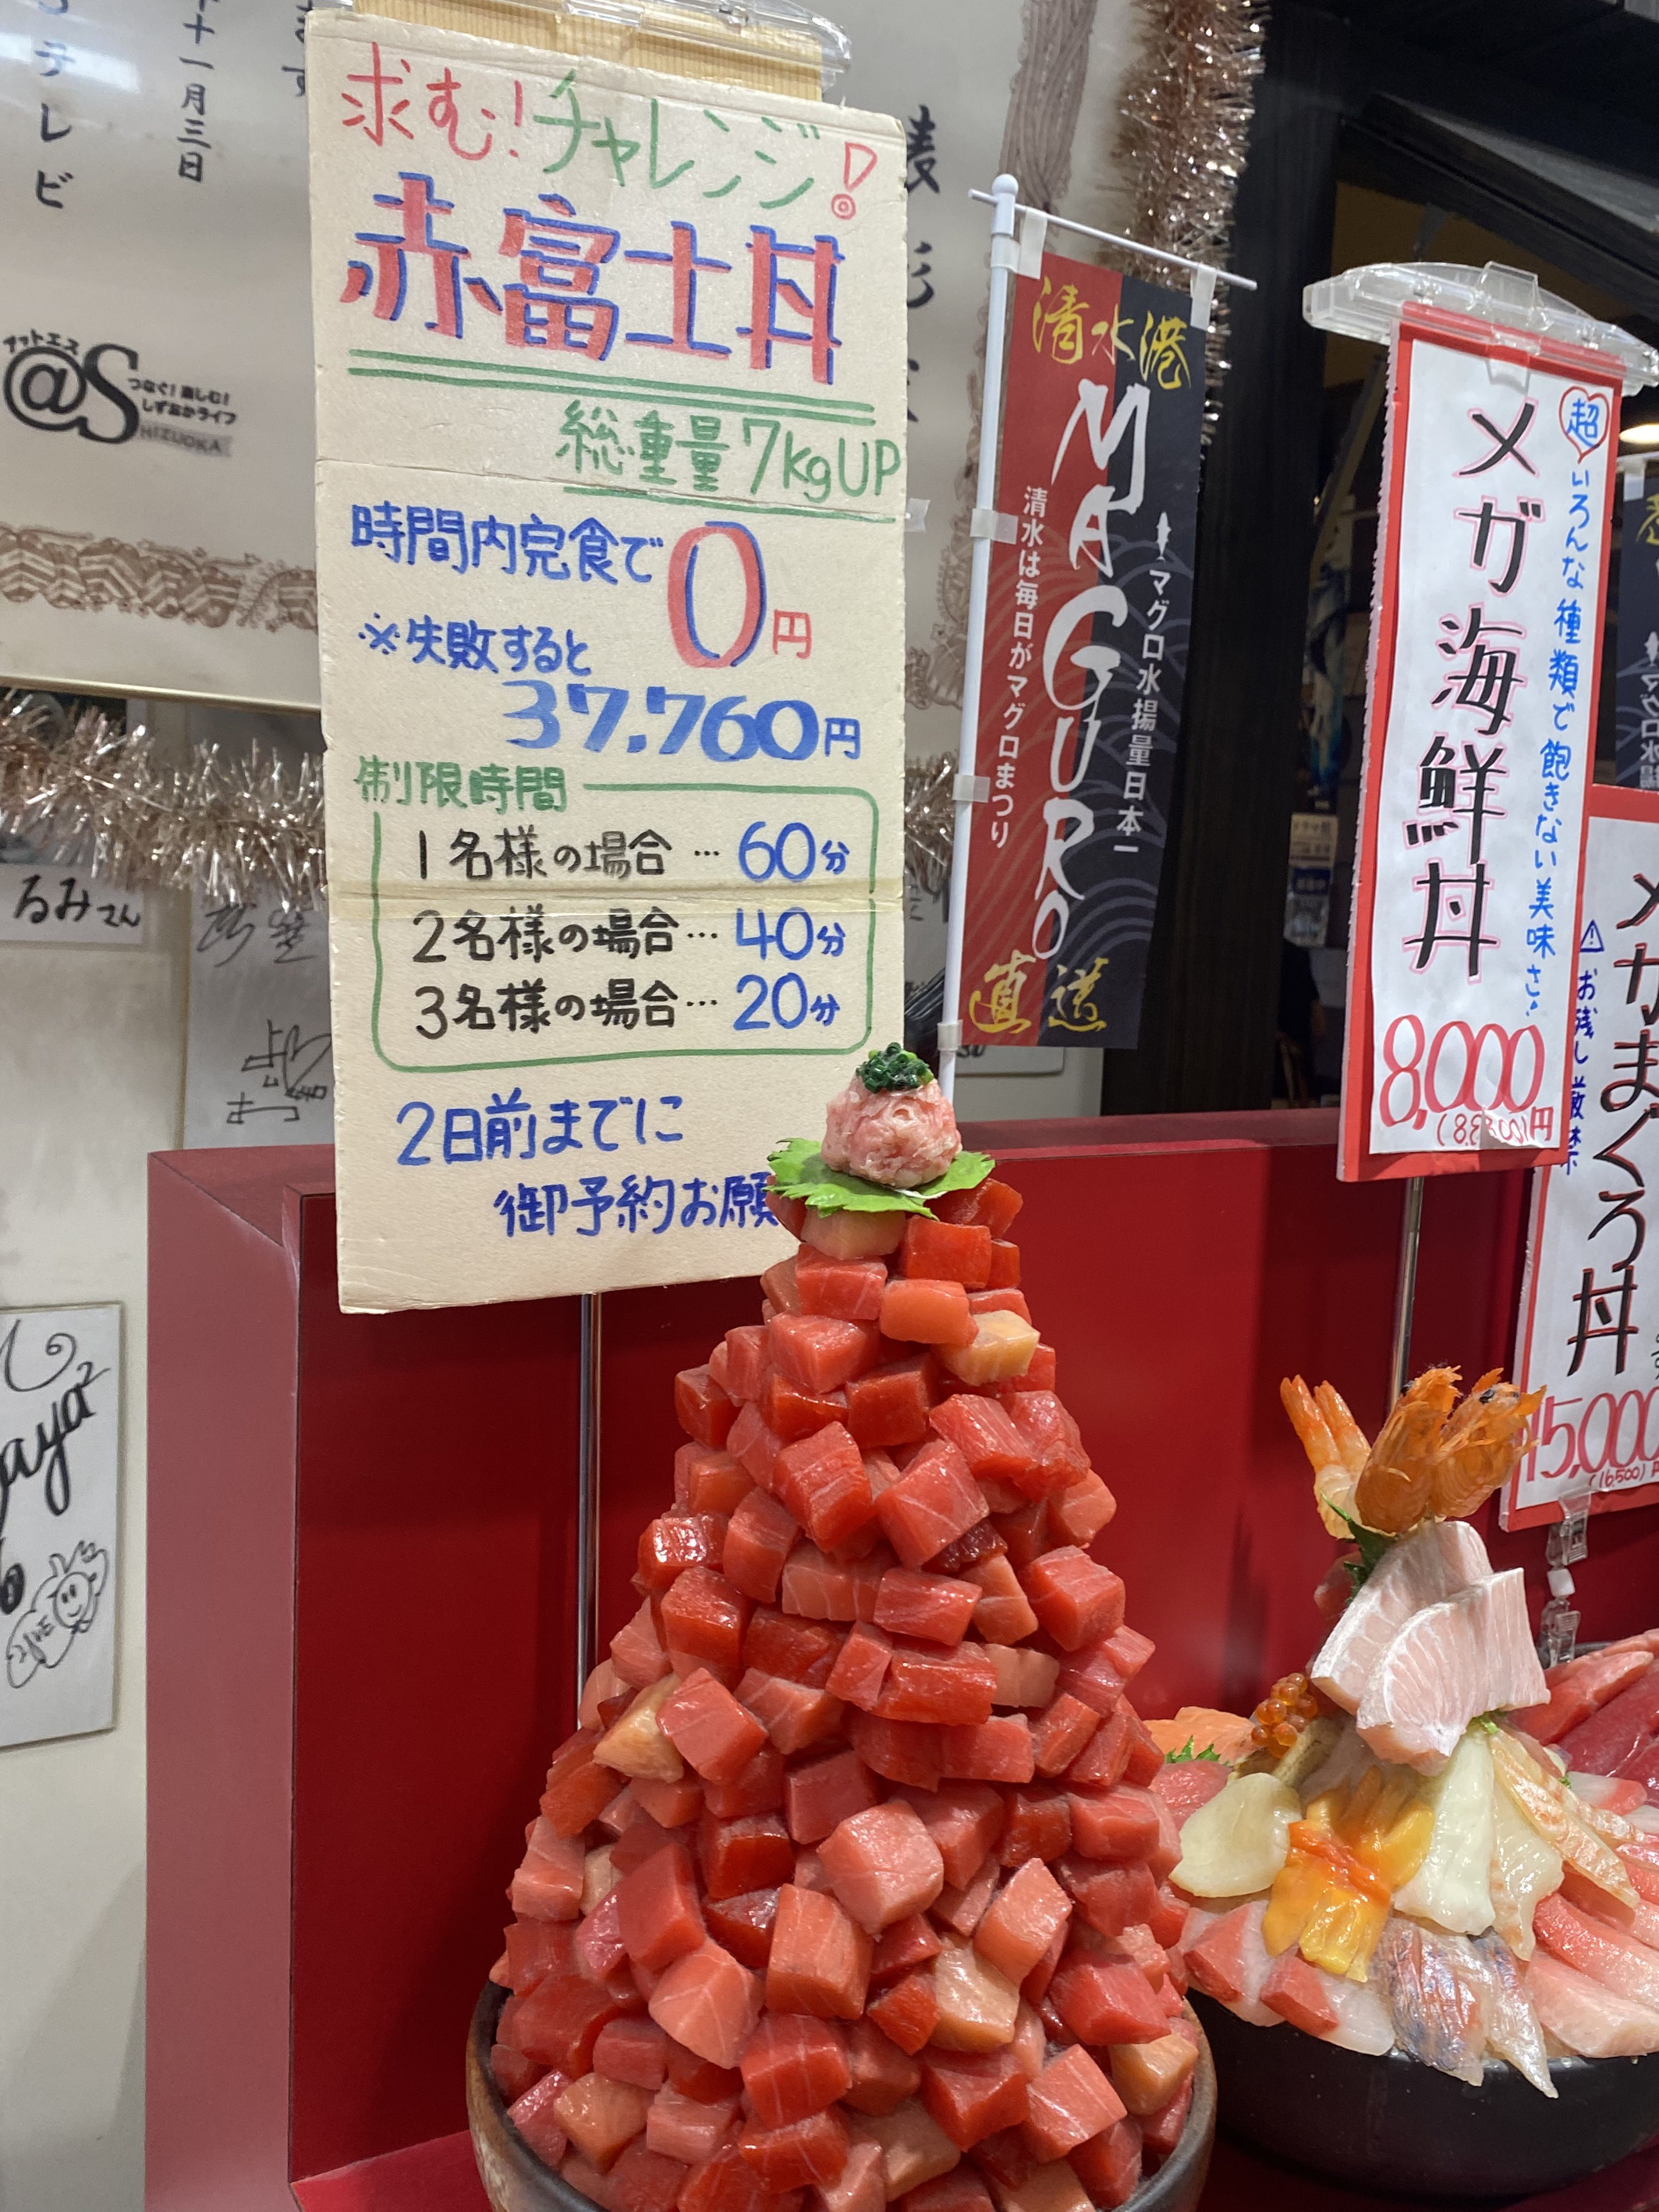 求む!チャレンジ!
赤富士丼
総重量7kgUP
時間内完食で
0円
※失敗すると
37.760円
制限時間
1名様の場合…60分
2名様の場合…40分
3名様の場合…20分
2日前までに
御予約お願
清水港
MAGURO
直送
マグロ水揚量日本一
清水は毎日がマグロまつり
超
いろんな種類で飽きない美味さ!
メガ海鮮丼
8,000円
メガまぐろ丼
⚠お残し厳禁
15,000
(16,500)円
テレビ
十一月三日
アットエス
@S
つなぐ!楽しむ!
しずおかライフ
HIZUOKA
るみさん